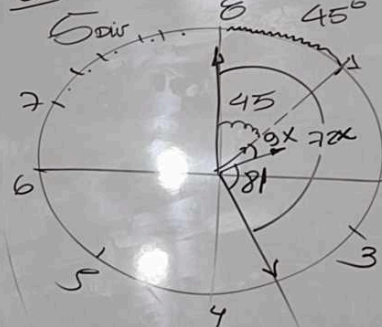 5 Div
8
45°
1
7
45
9x
72x
81
6
3
5
4